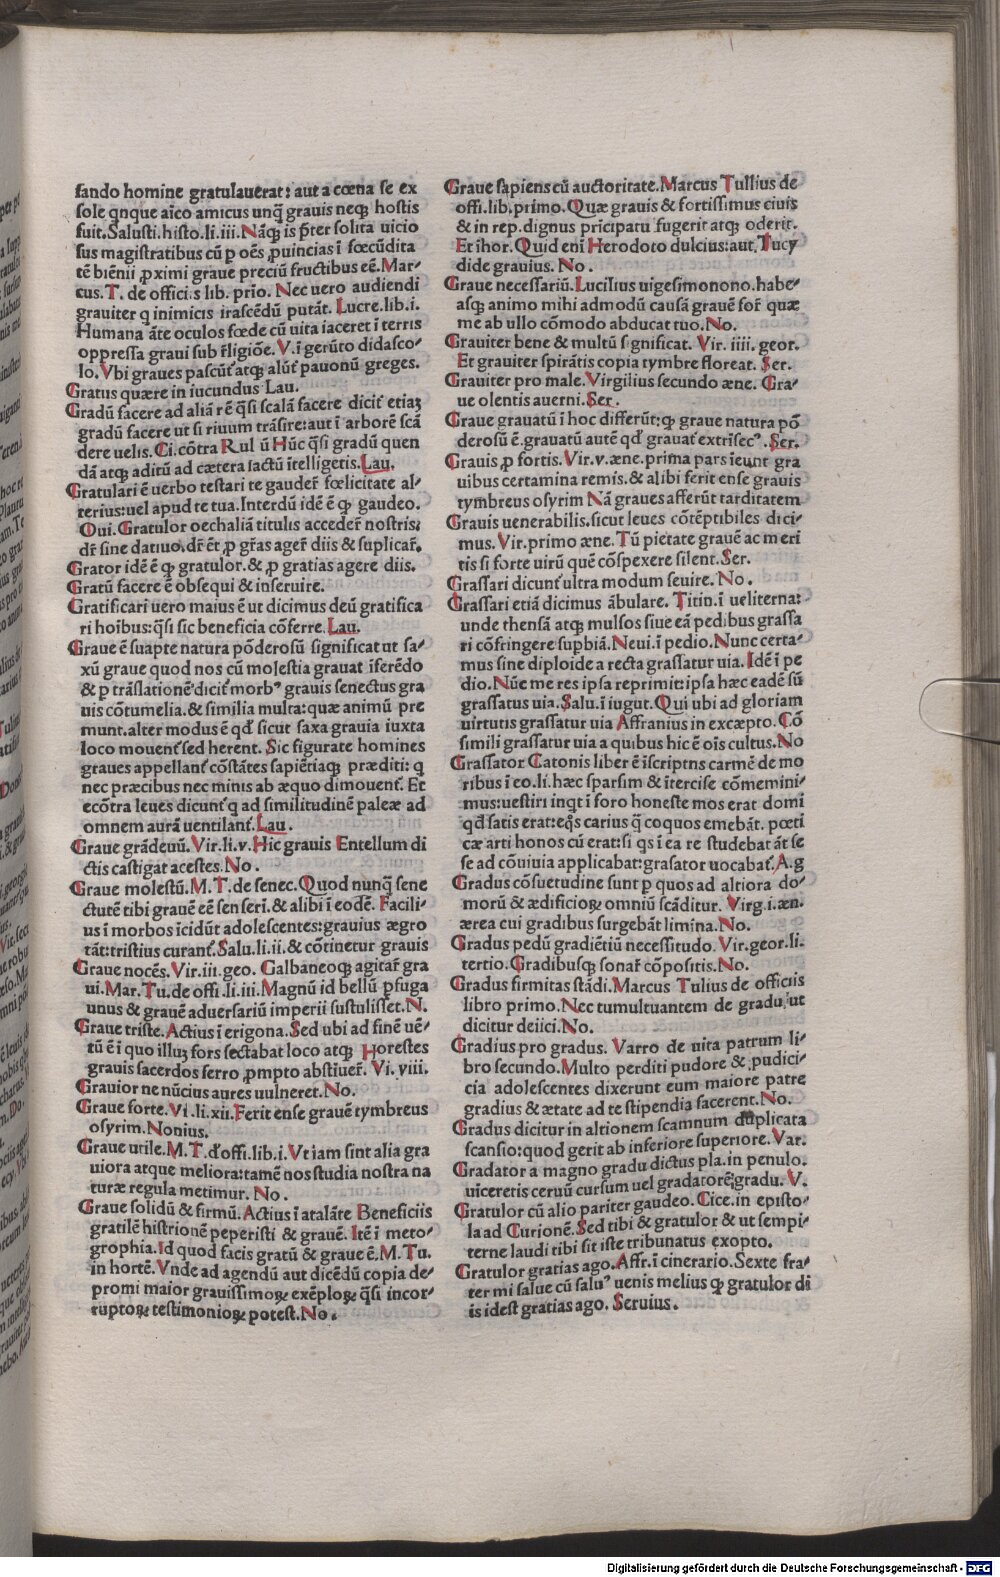 fando homine gratulauerat: aut a cœna se ex
sole qnque aīco amicus unq̄ grauis neqȝ hostis
fuit. Salusti. histo. li. iii. Nāqȝ is p̄ter solita uicio
sus magistratibus cū p oēs ꝓuincias ī fœcūdita
tē biēnii ꝓximi graue preciū fructibus eē. Mar⸗
cus. T. de officiis lib. prīo. Nec uero audiendi
grauiter q inimicis irascēdū putāt. Lucre. lib. i.
Humana āte oculos fœde cū uita iaceret ī terris
oppressa graui sub r̄ligiōe. V. ī gerūto didasco⸗
lo. Vbi graues pascūt atqȝ alūt pauonū greges.
Gratus quære in iucundus Lau.
Gradū facere ad aliā rē q̄si scalā facere dicit̄ etiaȝ
gradū facere ut si riuum trāsire: aut ī arborē scā
dere uelis. Ci. cōtra Rul ū Hūc q̄si gradū quen
dā atqȝ aditū ad cætera factū ītelligetis. Lau.
Gratulari ē uerbo testari te gauder̄ fœlicitate al⸗
terius: uel apud te tua. Interdū idē ē qȝ gaudeo.
Oui. Gratulor œchaliā titulis acceder̄ nostris:
dr̄ sine datiuo. dr̄ ēt ꝓ gr̄as ager̄ diis & suplicar̄.
Grator idē ē qȝ gratulor. & ꝓ gratias agere diis.
Gratū facere ē obsequi & inseruire.
Gratificari uero maius ē ut dicimus deū gratifica
ri hoībus: q̄si sic beneficia cōferre. Lau.
Graue ē suapte natura pōderosū significat ut sa⸗
xū graue quod nos cū molestia grauat īferēdo
& p trāslationē dicit̄ morbꝰ grauis senectus gra
uis cōtumelia. & similia multa: quæ animū pre
munt. alter modus ē qd̄ sicut saxa grauia iuxta
loco mouent̄ sed herent. Sic figurate homines
graues appellant̄ cōstātes sapiētiaqȝ præditi: q
nec præcibus nec minis ab æquo dimouent̄. Et
ecōtra leues dicunt̄ q ad similitudinē paleæ ad
omnem aurā uentilant̄. Lau.
Graue grādeuū. Vir. li. v. Hic grauis Entellum di
ctis castigat acestes. No.
Graue molestū. M. T. de senec. Quod nunq̄ sene
ctutē tibi grauē eē senseri. & alibi ī eodē. Facili⸗
us ī morbos icidūt adolescentes: grauius ægro
tāt: tristius curant̄. Salu. li. ii. & cōtinetur grauis
Graue nocēs. Vir. iii. geo. Galbaneoqȝ agitar̄ gra
ui. Mar. Tu. de offi. li. iii. Magnū id bellū pfuga
unus & grauē aduersariū imperii sustulisset. N.
Graue triste. Actius ī erigona. Sed ubi ad finē uē⸗
tū ē ī quo illuȝ fors sectabat loco atqȝ Horestes
grauis sacerdos ferro ꝓmpto abstiuer̄. Vi. viii.
Grauior ne nūcius aures uulneret. No.
Graue forte. Vi. li. xii. Ferit ense grauē tymbreus
osyrim. Nonius.
Graue utile. M. T. d̄ offi. lib. i. Vt iam sint alia gra
uiora atque meliora: tamē nos studia nostra na
turæ regula metimur. No.
Graue solidū & firmū. Actius ī atalāte Beneficiis
gratilē histrionē peperisti & grauē. Itē ī meto⸗
grophia. Id quod facis gratū & graue ē. M. Tu.
in hortē. Vnde ad agendū aut dicēdū copia de⸗
promi maior grauissimoꝝ exēploꝝ q̄si incor⸗
ruptoꝝ testimonioꝝ potest. No.
Graue sapiens cū auctoritate. Marcus Tullius de
offi. lib. primo. Quæ grauis & fortissimus ciuis
& in rep. dignus prīcipatu fugerit atqȝ oderit.
Et ī hor. Quid enī Herodoto dulcius: aut. Tucy
dide grauius. No.
Graue necessariū. Lucilius uigesimonono. habe⸗
asqȝ animo mihi admodū causā grauē for̄ quæ
me ab ullo cōmodo abducat tuo. No.
Grauiter bene & multū significat. Vir. iiii. geor.
Et grauiter spirātis copia tymbre floreat. Ser.
Grauiter pro male. Virgilius secundo æne. Gra⸗
ue olentis auerni. Ser.
Graue grauatū ī hoc differūt: qȝ graue natura pō
derosū ē. grauatū autē qd̄ grauat̄ extrīsecꝰ. Ser.
Grauis ꝓ fortis. Vir. v. æne. prima pars īeunt gra
uibus certamina remis. & alibi ferit ense grauis
tymbreus osyrim Nā graues afferūt tarditatem
Grauis uenerabilis. sicut leues cōtēptibiles dici⸗
mus. Vir. primo æne. Tū pietate grauē ac meri
tis si forte uirū quē cōspexere silent. Ser.
Grassari dicunt̄ ultra modum seuire. No.
Grassari etiā dicimus ābulare. Titin. ī ueliterna:
unde thensā atqȝ mulsos siue eā pedibus grassa
ri cōfringere supbiā. Neui. ī pedio. Nunc certa⸗
mus sine diploide a recta grassatur uia. Idē ī pe
dio. Nūc me res ipsa reprimit: ipsa hæc eadē sū
grassatus uia. Salu. ī iugut. Qui ubi ad gloriam
uirtutis grassatur uia Affranius in excæpto. Cō
simili grassatur uia a quibus hic ē oīs cultus. No
Grassator Catonis liber ē īscriptns carmē de mo
ribus ī eo. li. hæc sparsim & ītercise cōmemini⸗
mus: uestiri inqt ī foro honeste mos erat domi
qd̄ satis erat: eqȝs carius q̄ coquos emebāt. pœti
cæ arti honos cū erat: si qs ī ea re studebat āt se
se ad cōuiuia applicabat: grasator uocabat̄. A. g
Gradus cōsuetudine sunt p quos ad altiora do⸗
morū & ædificioꝝ omniū scāditur. Virg. i. æn.
ærea cui gradibus surgebāt limina. No.
Gradus pedū gradiētiū necessitudo. Vir. geor. li.
tertio. Gradibusqȝ sonar̄ cōpositis. No.
Gradus firmitas stādi. Marcus Tulius de officiis
libro primo. Nec tumultuantem de gradu ut
dicitur deiici. No.
Gradius pro gradus. Varro de uita patrum li⸗
bro secundo. Multo perditi pudore & pudici⸗
cia adolescentes dixerunt eum maiore patre
gradius & ætate ad te stipendia facerent. No.
Gradus dicitur in altionem scamnum duplicata
scansio: quod gerit ab inferiore superiore. Var.
Gradator a magno gradu dictus pla. in penulo.
uiceretis ceruū cursum uel gradatorē gradu. V.
Gratulor cū alio pariter gaudeo. Cice. in episto⸗
la ad Curionē. Sed tibi & gratulor & ut sempi⸗
terne laudi tibi sit iste tribunatus exopto.
Gratulor gratias ago. Affr. ī cinerario. Sexte fra⸗
ter mi salue cū saluꝰ uenis melius qȝ gratulor di
is idest gratias ago. Seruius.
Digitalisierung gefördert durch die Deutsche Forschungsgemeinschaft - DFG